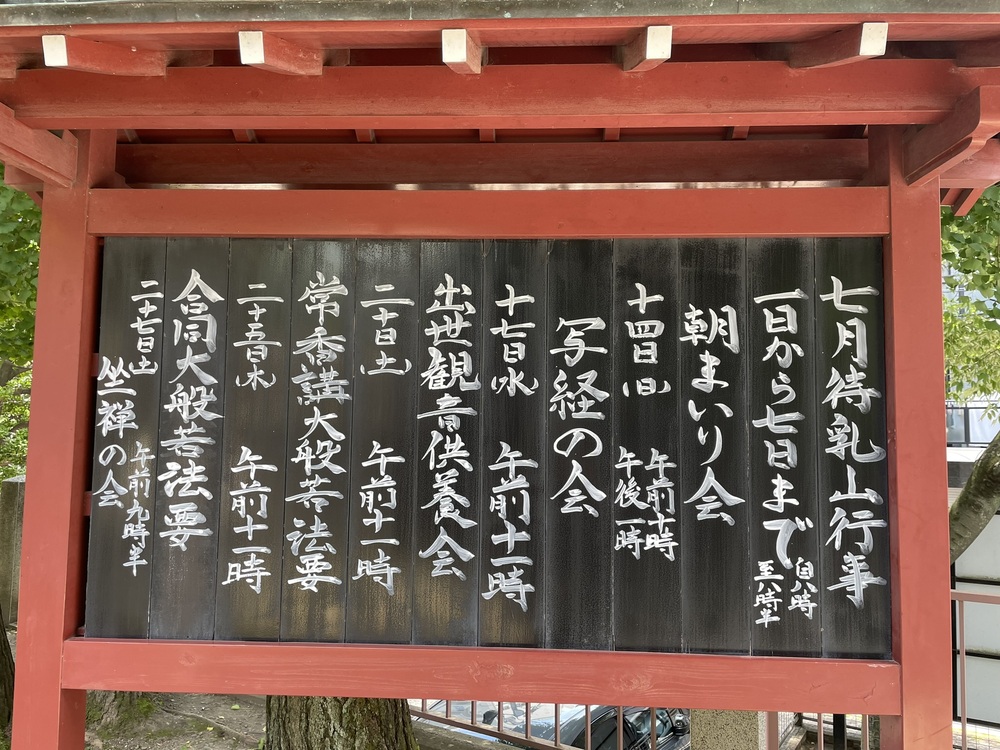 七月待乳山行事
一日から七日まで 自八時
至八時半
朝まいり会
十四日(日) 午前十時
午後一時
写経の会
十七日(水) 午前十一時
出世観音供養会
二十日(土) 午前十一時
常香講大般若法要
二十五日(木) 午前十一時
合同大般若法要
二十七日(土) 午前九時半
坐禅の会